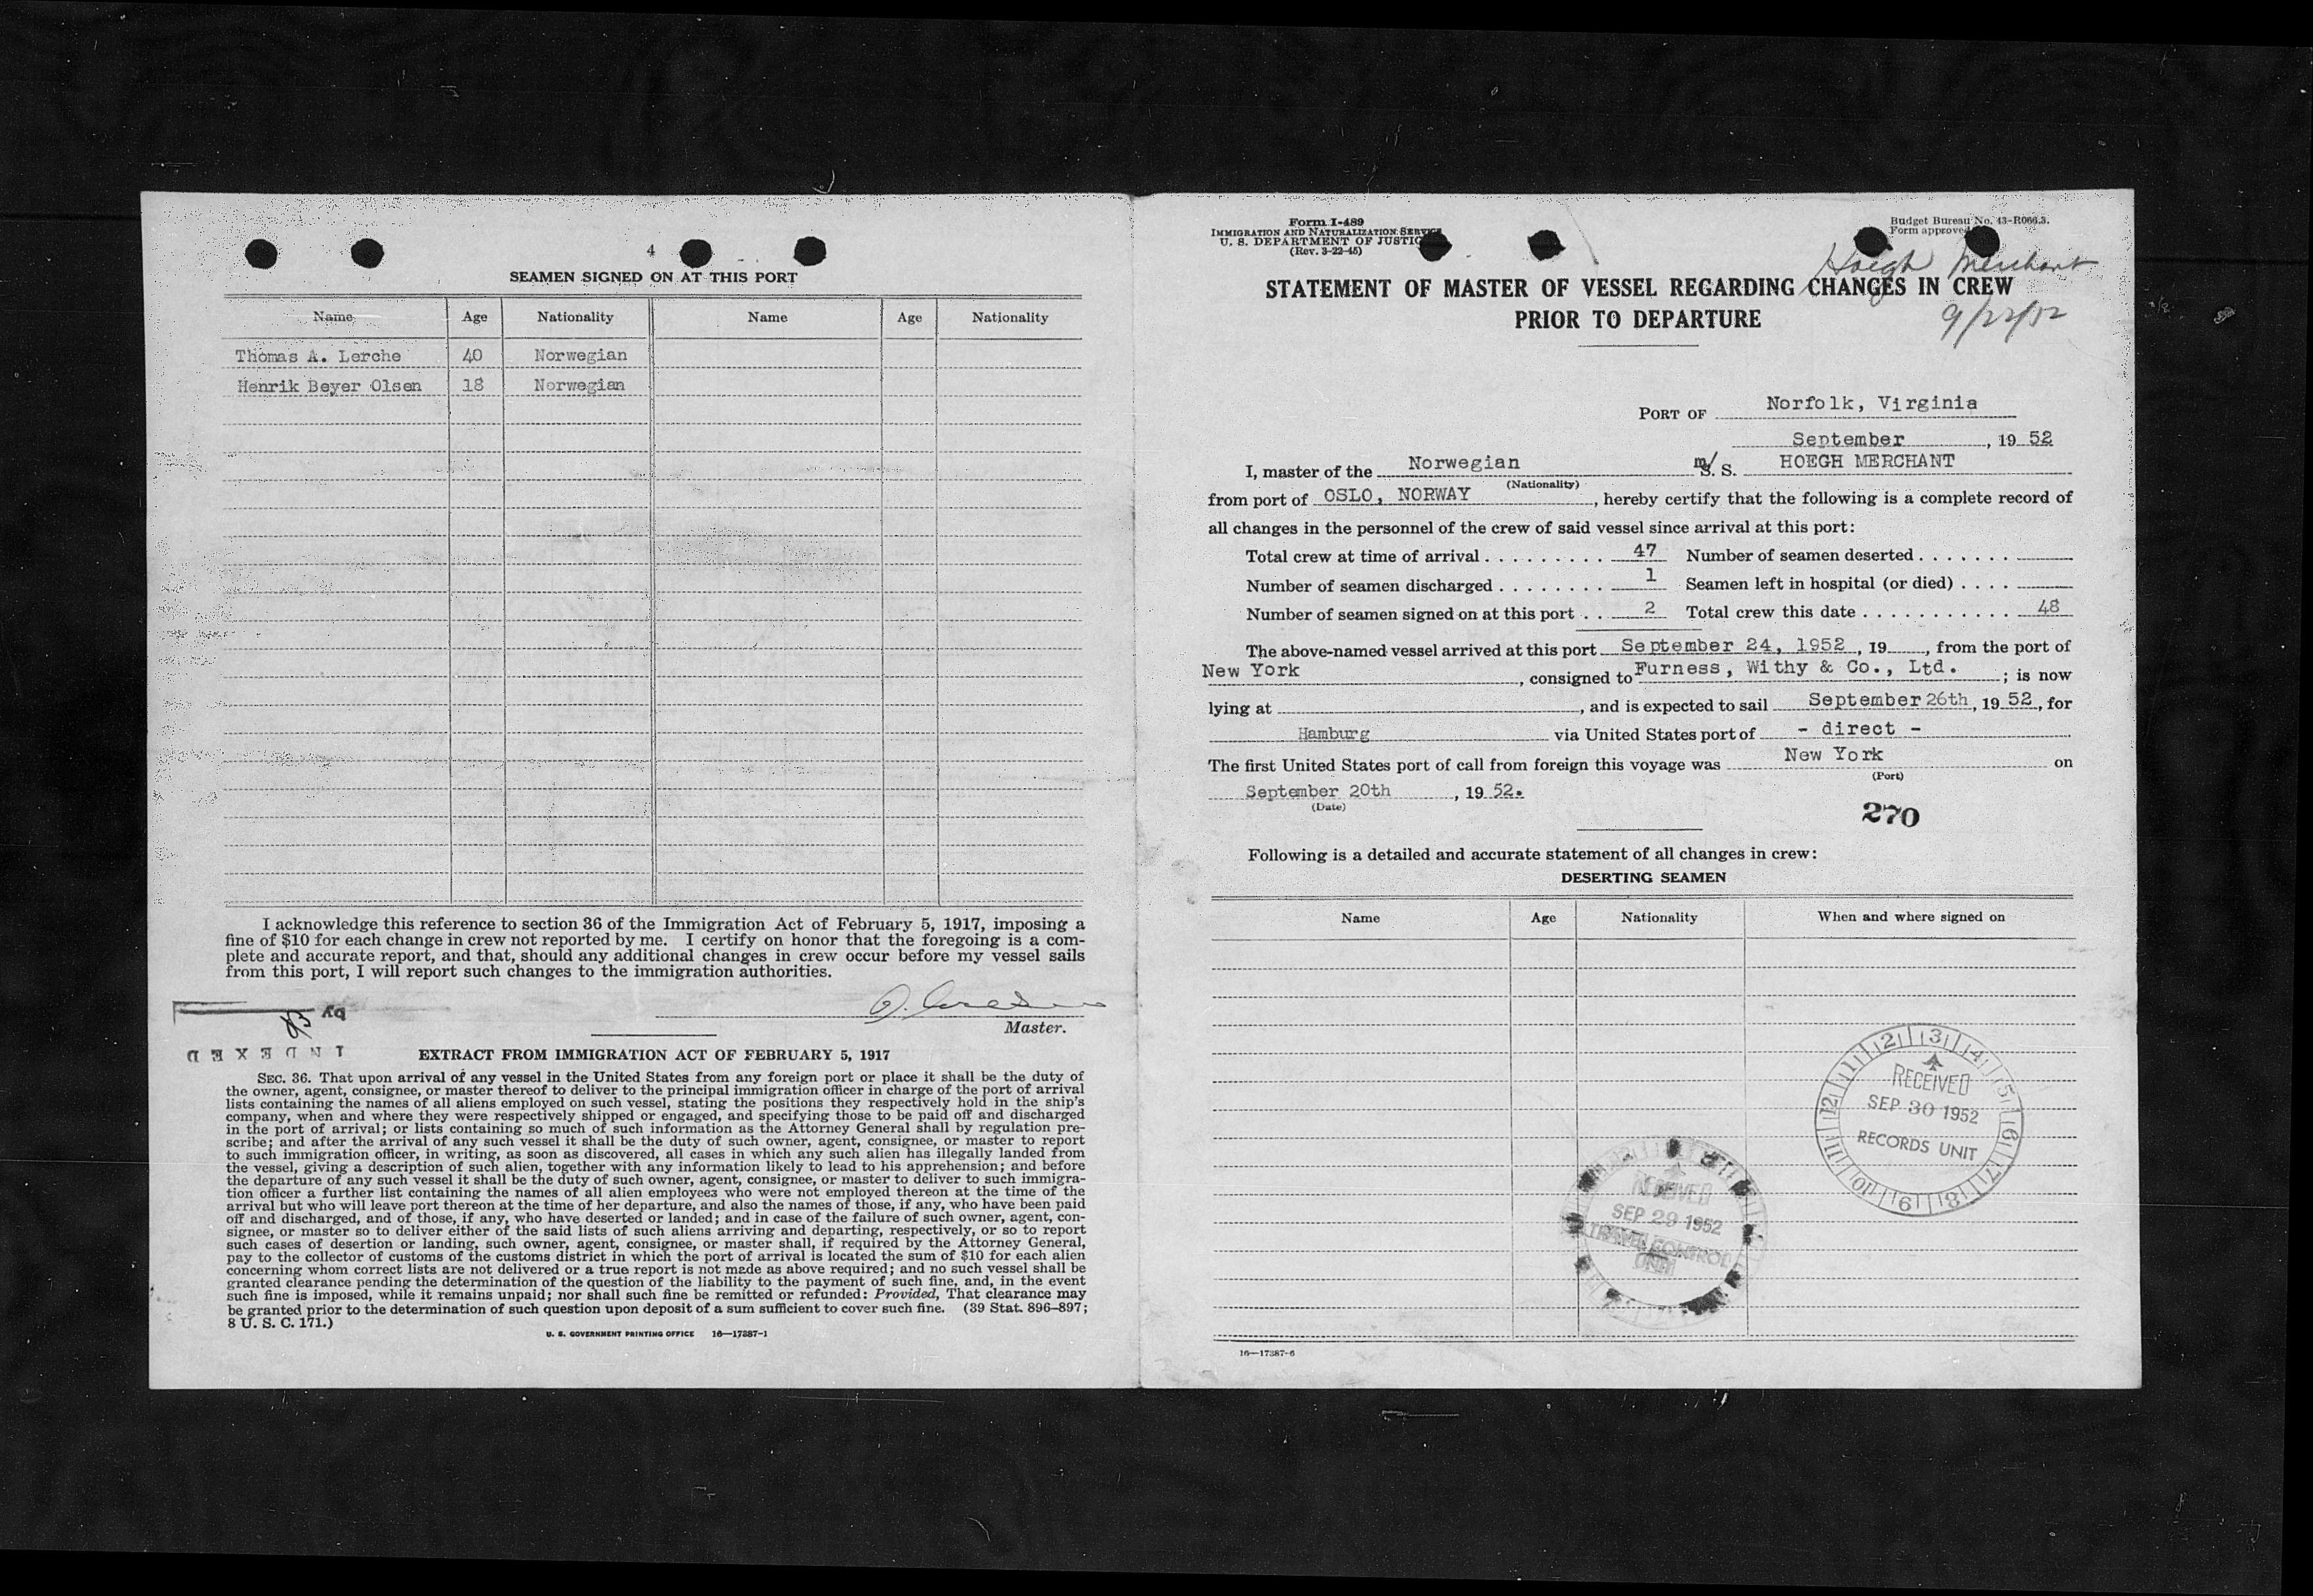 4
SEAMEN SIGNED ON AT THIS PORT
Name Age Nationality Name Age Nationality
Thomas A. Lerche 40 Norwegian
Henrik Beyer Olsen 18 Norwegian
I acknowledge this reference to section 36 of the Immigration Act of February 5, 1917, imposing a
fine of $10 for each change in crew not reported by me. I certify on honor that the foregoing is a com-
plete and accurate report, and that, should any additional changes in crew occur before my vessel sails
from this port, I will report such changes to the immigration authorities.
By
Master.
INDEXED
EXTRACT FROM IMMIGRATION ACT OF FEBRUARY 5, 1917
SEC. 36. That upon arrival of any vessel in the United States from any foreign port or place it shall be the duty of
the owner, agent, consignee, or master thereof to deliver to the principal immigration officer in charge of the port of arrival
lists containing the names of all aliens employed on such vessel, stating the positions they respectively hold in the ship's
company, when and where they were respectively shipped or engaged, and specifying those to be paid off and discharged
in the port of arrival; or lists containing so much of such information as the Attorney General shall by regulation pre-
scribe; and after the arrival of any such vessel it shall be the duty of such owner, agent, consignee, or master to report
to such immigration officer, in writing, as soon as discovered, all cases in which any such alien has illegally landed from
the vessel, giving a description of such alien, together with any information likely to lead to his apprehension; and before
the departure of any such vessel it shall be the duty of such owner, agent, consignee, or master to deliver to such immigra-
tion officer a further list containing the names of all alien employees who were not employed thereon at the time of the
arrival but who will leave port thereon at the time of her departure, and also the names of those, if any, who have been paid
off and discharged, and of those, if any, who have deserted or landed; and in case of the failure of such owner, agent, con-
signee, or master so to deliver either of the said lists of such aliens arriving and departing, respectively, or so to report
such cases of desertion or landing, such owner, agent, consignee, or master shall, if required by the Attorney General,
pay to the collector of customs of the customs district in which the port of arrival is located the sum of $10 for each alien
concerning whom correct lists are not delivered or a true report is not made as above required; and no such vessel shall be
granted clearance pending the determination of the question of the liability to the payment of such fine, and, in the event
such fine is imposed, while it remains unpaid; nor shall such fine be remitted or refunded: Provided, That clearance may
be granted prior to the determination of such question upon deposit of a sum sufficient to cover such fine. (39 Stat. 896–897;
8 U. S. C. 171.)
U. S. GOVERNMENT PRINTING OFFICE 16—17387-1
Form I-489
IMMIGRATION AND NATURALIZATION SERVICE
U. S. DEPARTMENT OF JUSTICE
(Rev. 3-22-45)
Budget Bureau No. 43-R066.3.
Form approved
Hoegh Merchant
STATEMENT OF MASTER OF VESSEL REGARDING CHANGES IN CREW
PRIOR TO DEPARTURE
9/22/52
PORT OF Norfolk, Virginia
September, 19 52
I, master of the Norwegian m/S. S. HOEGH MERCHANT
(Nationality)
from port of OSLO, NORWAY, hereby certify that the following is a complete record of
all changes in the personnel of the crew of said vessel since arrival at this port:
Total crew at time of arrival . . . . . . . . . . 47 Number of seamen deserted . . . . . . .
Number of seamen discharged . . . . . . . . 1 Seamen left in hospital (or died) . . . .
Number of seamen signed on at this port . . 2 Total crew this date . . . . . . . . . . . . 48
The above-named vessel arrived at this port September 24, 1952, 19, from the port of
New York, consigned to Furness, Withy & Co., Ltd. ; is now
lying at, and is expected to sail September 26th, 19 52, for
Hamburg via United States port of - direct -
The first United States port of call from foreign this voyage was New York on
(Port)
September 20th, 19 52.
(Date)
270
Following is a detailed and accurate statement of all changes in crew:
DESERTING SEAMEN
Name Age Nationality When and where signed on
1 2 3 4 5 6 7 8 9 10 11 12
RECEIVED
SEP 30 1952
RECORDS UNIT
RECEIVED
SEP 29 1952
TRAVEL CONTROL
UNIT
16—17387-6